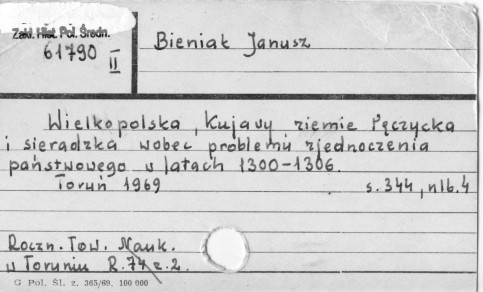 Zakł. Hist. Pol. Średn.
61790
II
Bieniak Janusz
Wielkopolska, Kujawy ziemie łęczycka
i sieradzka wobec problemu zjednoczenia
państwowego w latach 1300-1306.
Toruń 1969 s. 344, nlb. 4
Roczn. Tow. Nauk.
w Toruniu R. 74 z. 2.
G Pol. Śl. z. 365/69. 100 000